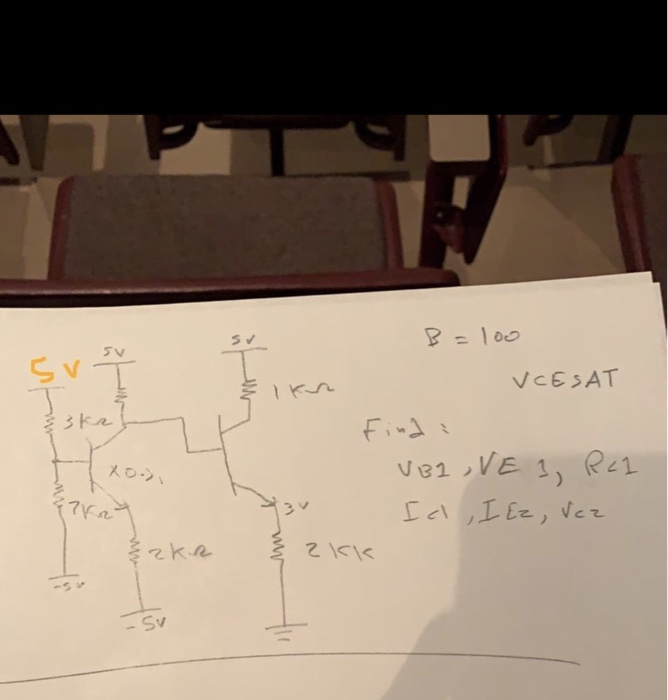 5V
5V
5V
B = 100
VCESAT
1KΩ
3KΩ
Find:
VB1, VE1, RC1
IC1, IE2, VC2
7KΩ
3V
2KΩ
2KK
-5V
-5V